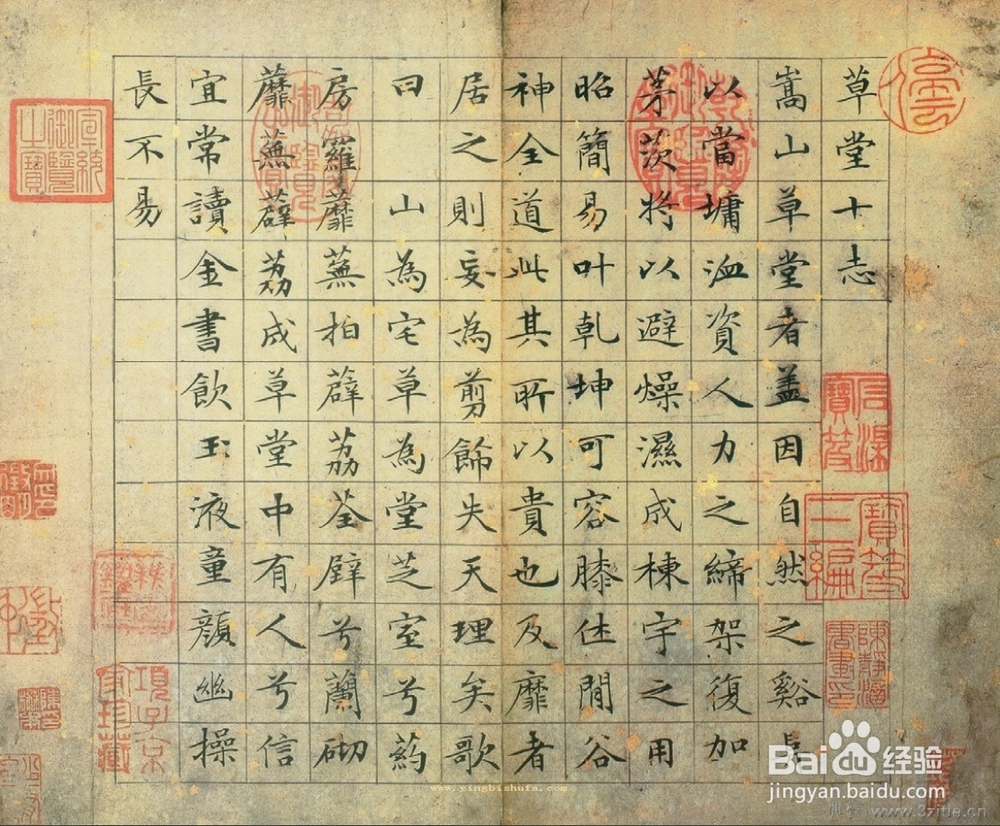 草堂十志
嵩山草堂者盖因自然之谿
以當墉洫資人力之締架復加
茅茨将以避燥濕成棟宇之用
昭簡易叶乾坤可容膝休閒谷
神全道此其所以貴也及靡者
居之則妄為剪餝失天理矣歌
曰 山為宅草為堂芝室兮葯
房羅蘼蕪拍薜荔荃壁兮蘭砌
蘼蕪薜荔成草堂中有人兮信
宜常讀金書飲玉液童顔幽操
長不易
宣統御覽之寶
石渠寶笈
寶笈三編
項子京家珍藏
www.yingbishufa.com
Bai 经验
jingyan.baidu.com
www.3zitie.cn